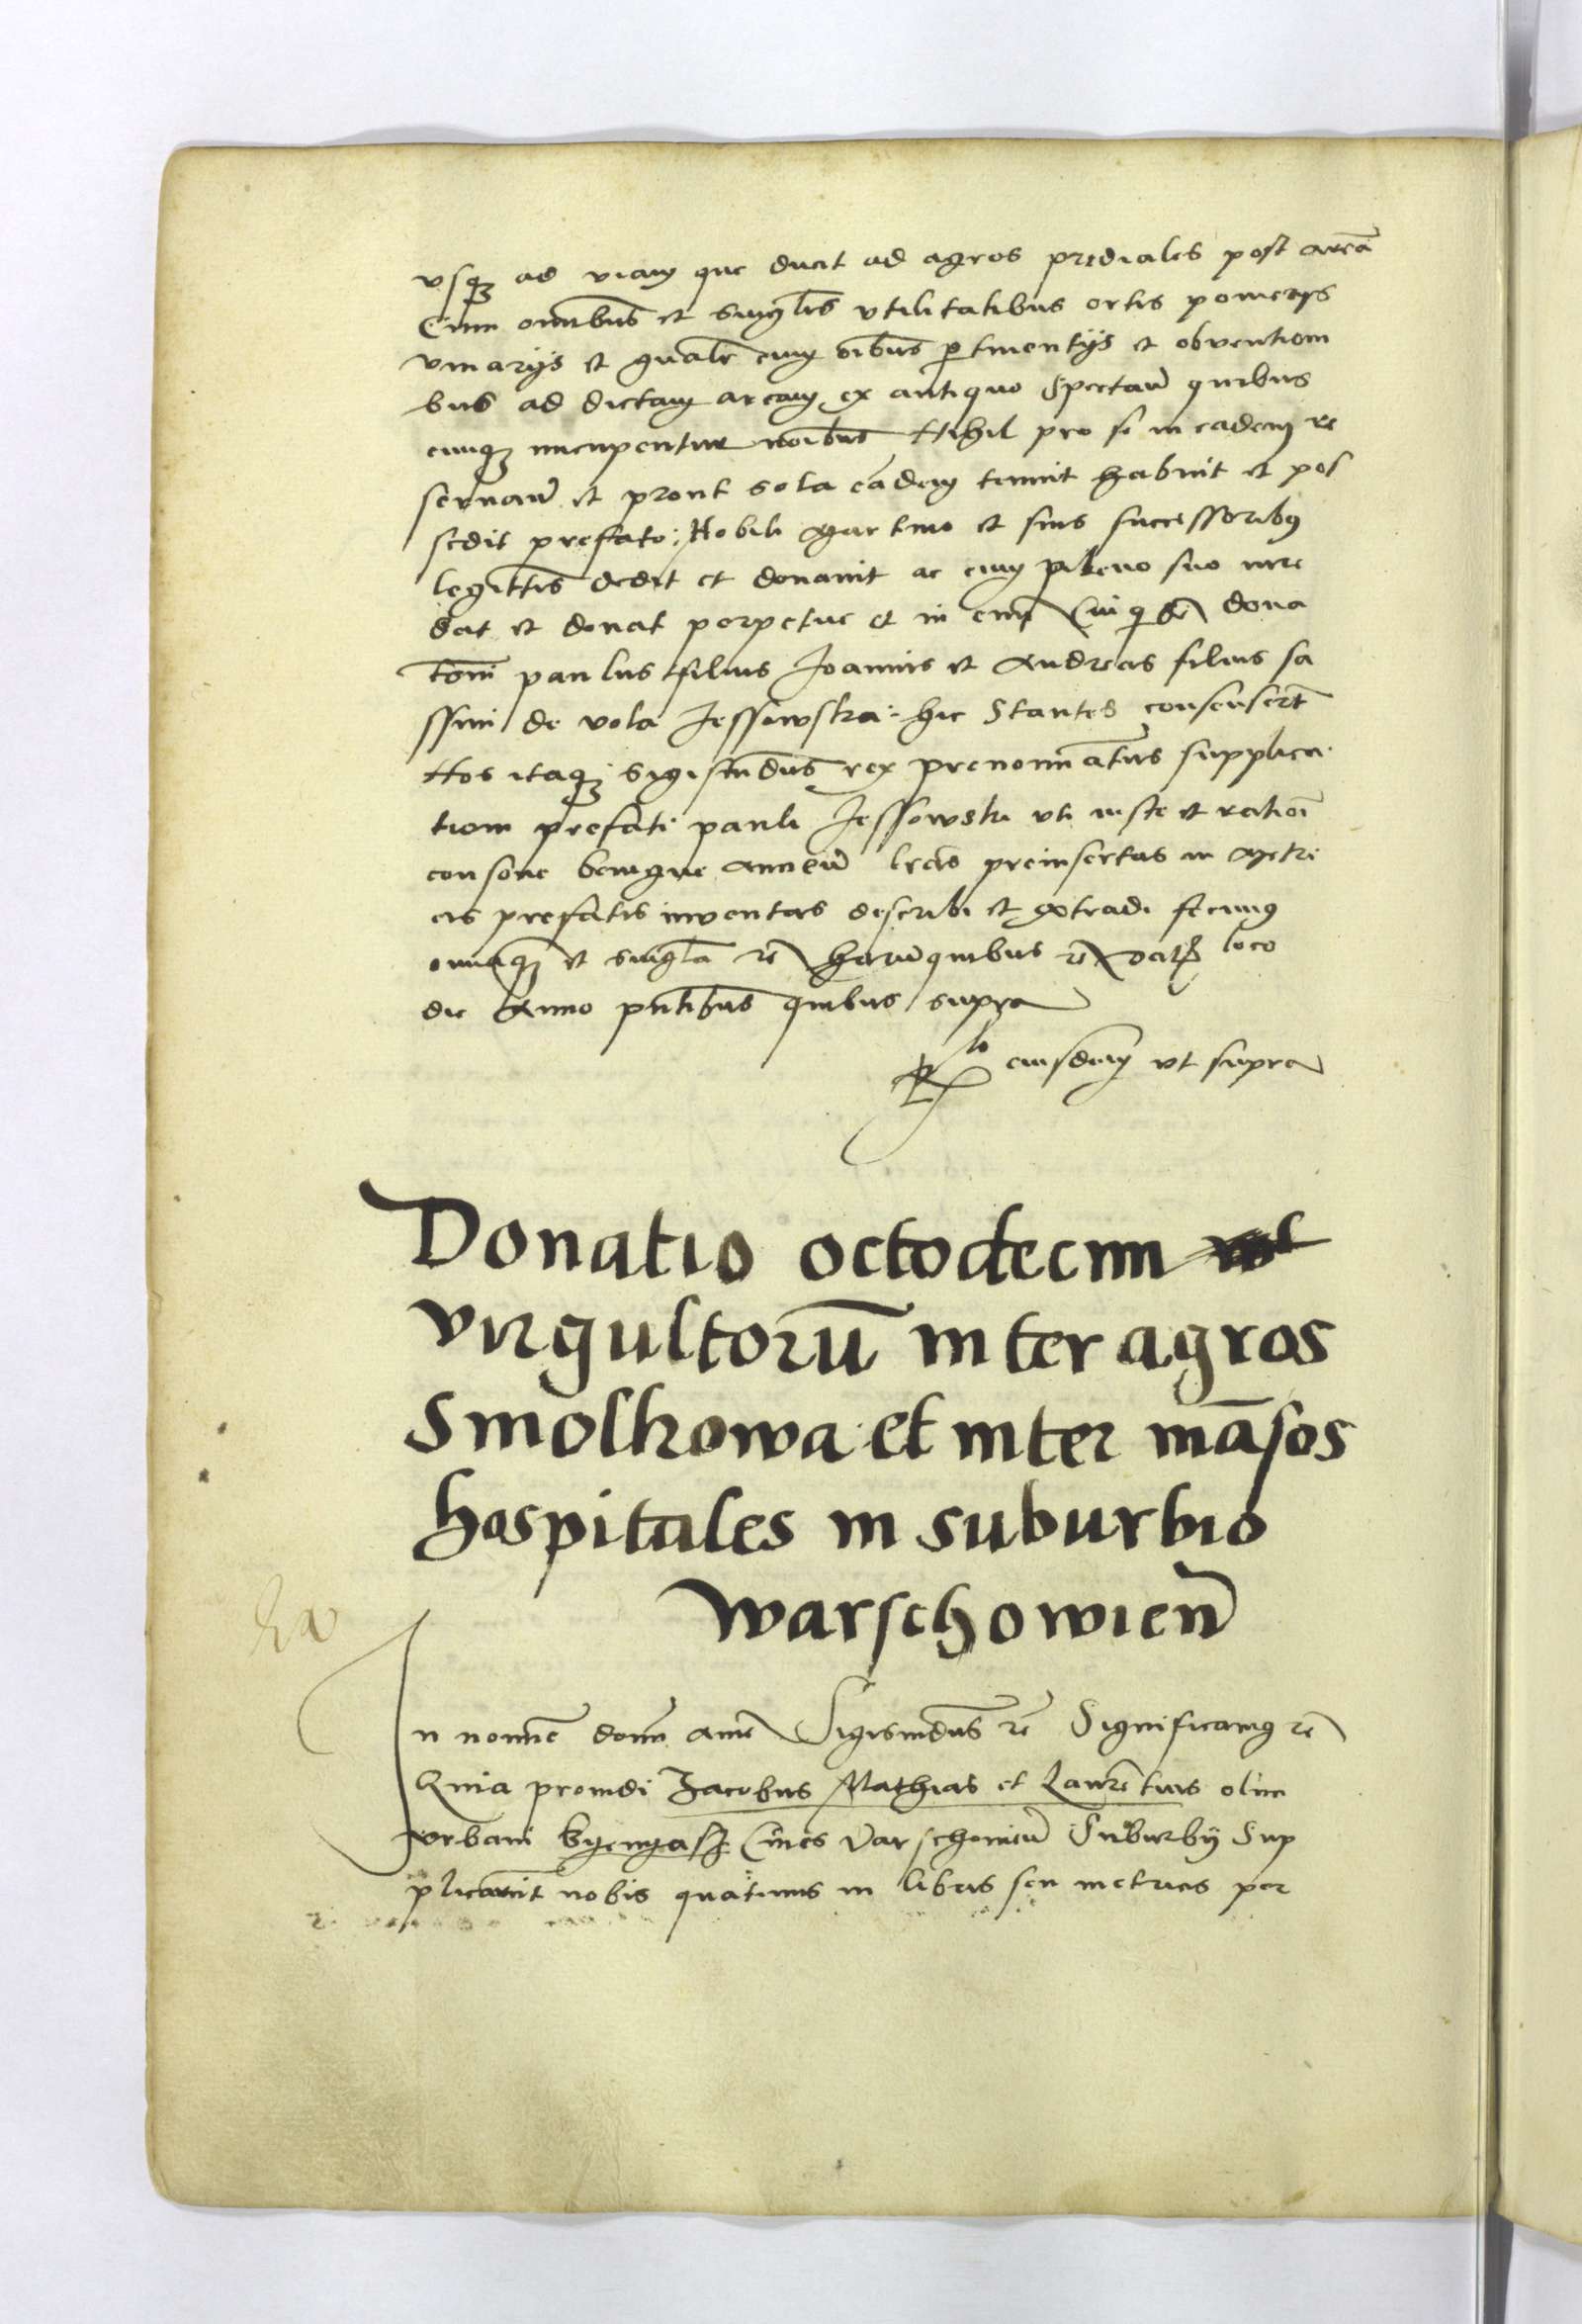 vsq3 ad viam que ducit ad agros prediales post areā
Cum omnibus et singlis vtilitatibus ortis pomerijs
vinarijs et gnalr cum oibus ptinentijs et obvention
bus ad dictam aream ex antiquo Spectan quibus
cunq3 nuncupentur noibus Nihil pro se in eadem re
servan et prout sola eādem tenuit habuit et pos
sedit prefato Nobili Martino et suis successoribus
legittis dedit et donavit ac cum pleno suo iure
dat et donat perpetue et in eum Cui qdē dona
toni paulus filius Joannis et Andreas filius sa
ssini de vola Jessowska hic Stantes consenserūt
Nos itaq3 Sigismūdus rex prenominatus supplica
tioni prefati pauli Jessowski vti iuste et rationi
consone benigne annuen lrās preinsertas in Metri
cis prefatis inventas describi et extradi fecimus
omniaq3 et singla rē harū quibus rē dat loco
die Anno pntibus quibus supra
Rlo eiusdem vt supra
Donatio octodecim
virgultorū inter agros
Smolkowa et inter māsos
hospitales in suburbio
warschowien
In nomine domini amē Sigismūdus rē Significamus rē
Quia providi Jacobus Mathias et Laurētius olim
vrbani byenyasz Cives Varschovien Suburbij Sup
plicarūt nobis quatinus in libris seu metricis per